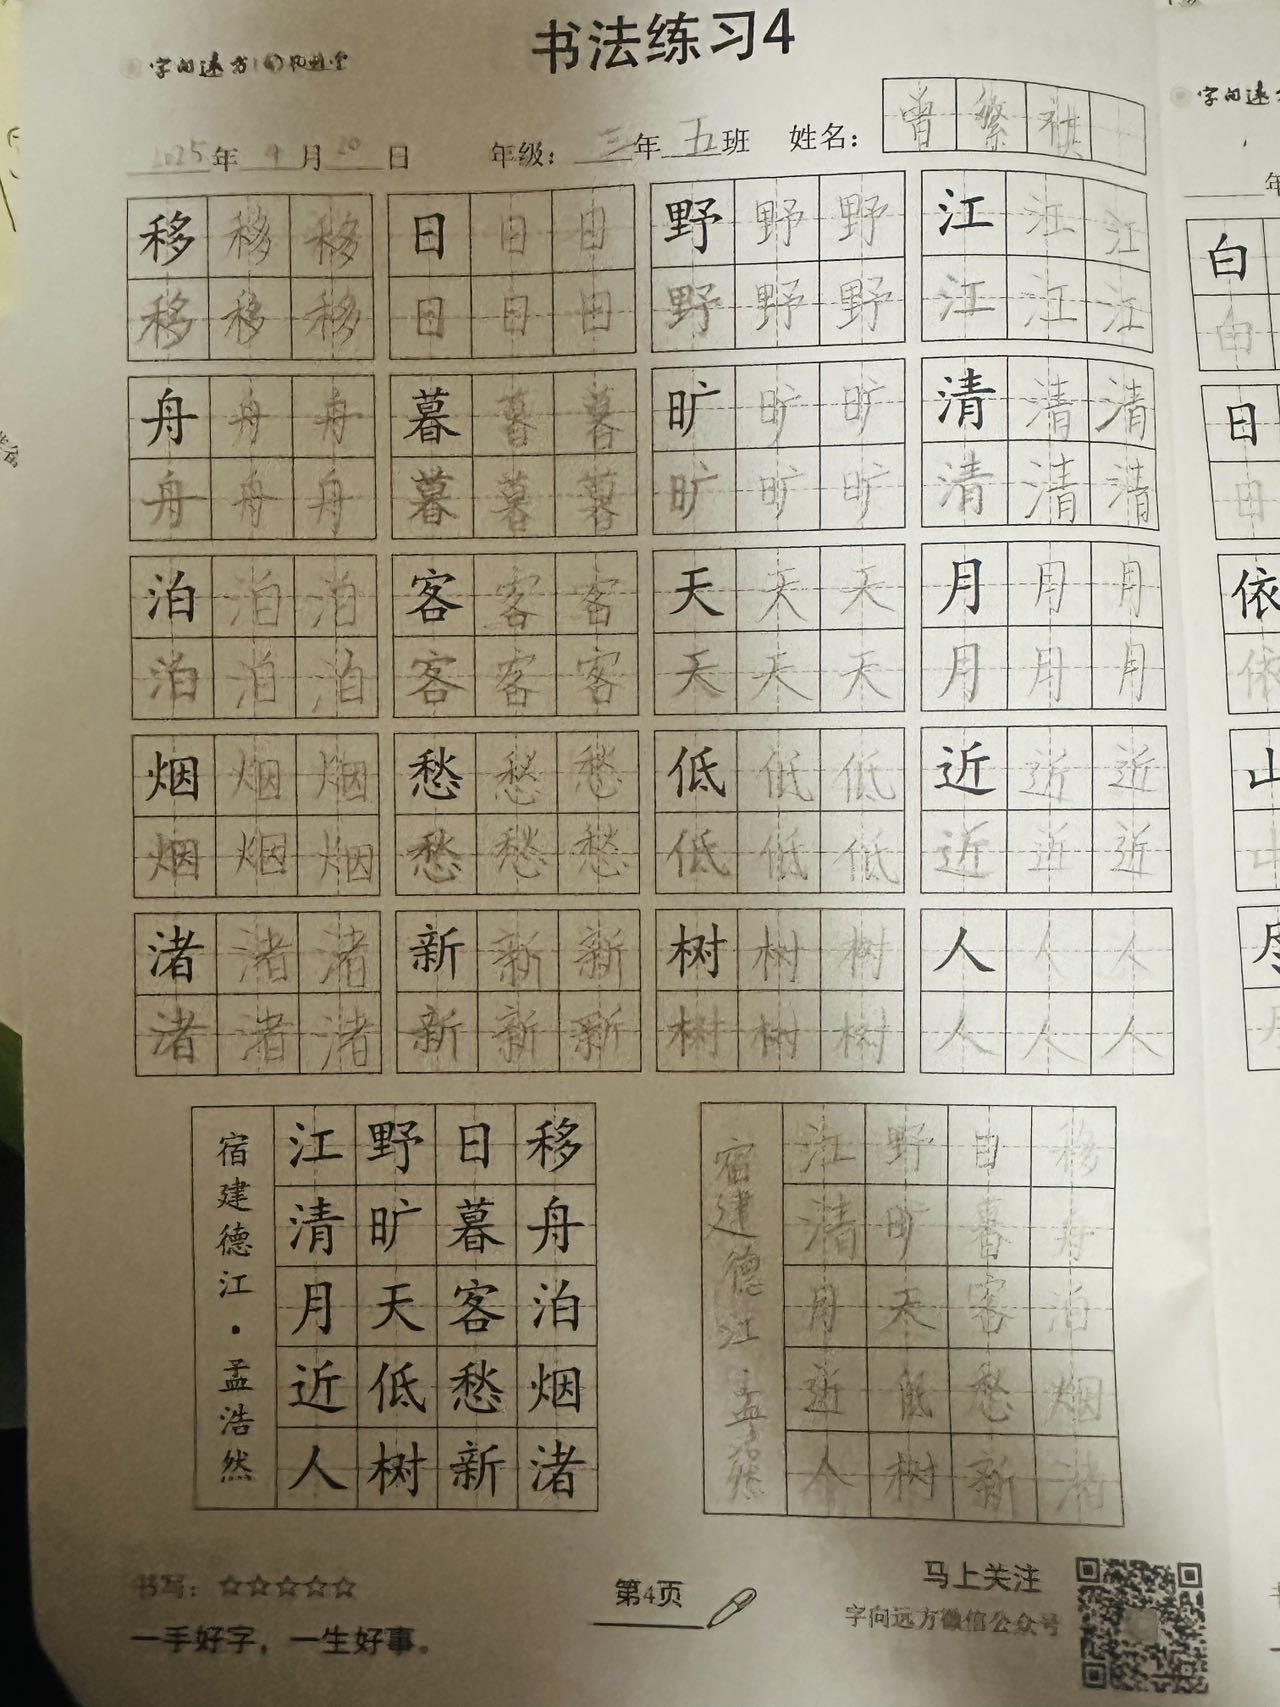 书法练习4
字向远方
2025年4月20日 年级：三年五班 姓名：曾繁祺
移移移 日日日 野野野 江江江
移移移 日日日 野野野 江江江
舟舟舟 暮暮暮 旷旷旷 清清清
舟舟舟 暮暮暮 旷旷旷 清清清
泊泊泊 客客客 天天天 月月月
泊泊泊 客客客 天天天 月月月
烟烟烟 愁愁愁 低低低 近近近
烟烟烟 愁愁愁 低低低 近近近
渚渚渚 新新新 树树树 人人人
渚渚渚 新新新 树树树 人人人
移舟泊烟渚
日暮客愁新
野旷天低树
江清月近人
宿建德江·孟浩然
移舟泊烟渚
日暮客愁新
野旷天低树
江清月近人
宿建德江·孟浩然
书写：☆☆☆☆☆
一手好字，一生好事。
第4页
马上关注
字向远方微信公众号
字向远
年
白
白
日
日
依
依
山
山